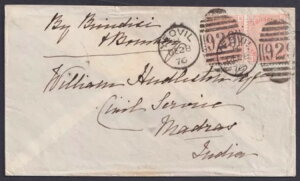 By Brindisi
& Bombay
YEOVIL
76
92
92
William Hudleston Esq
Civil Service
Madras
India